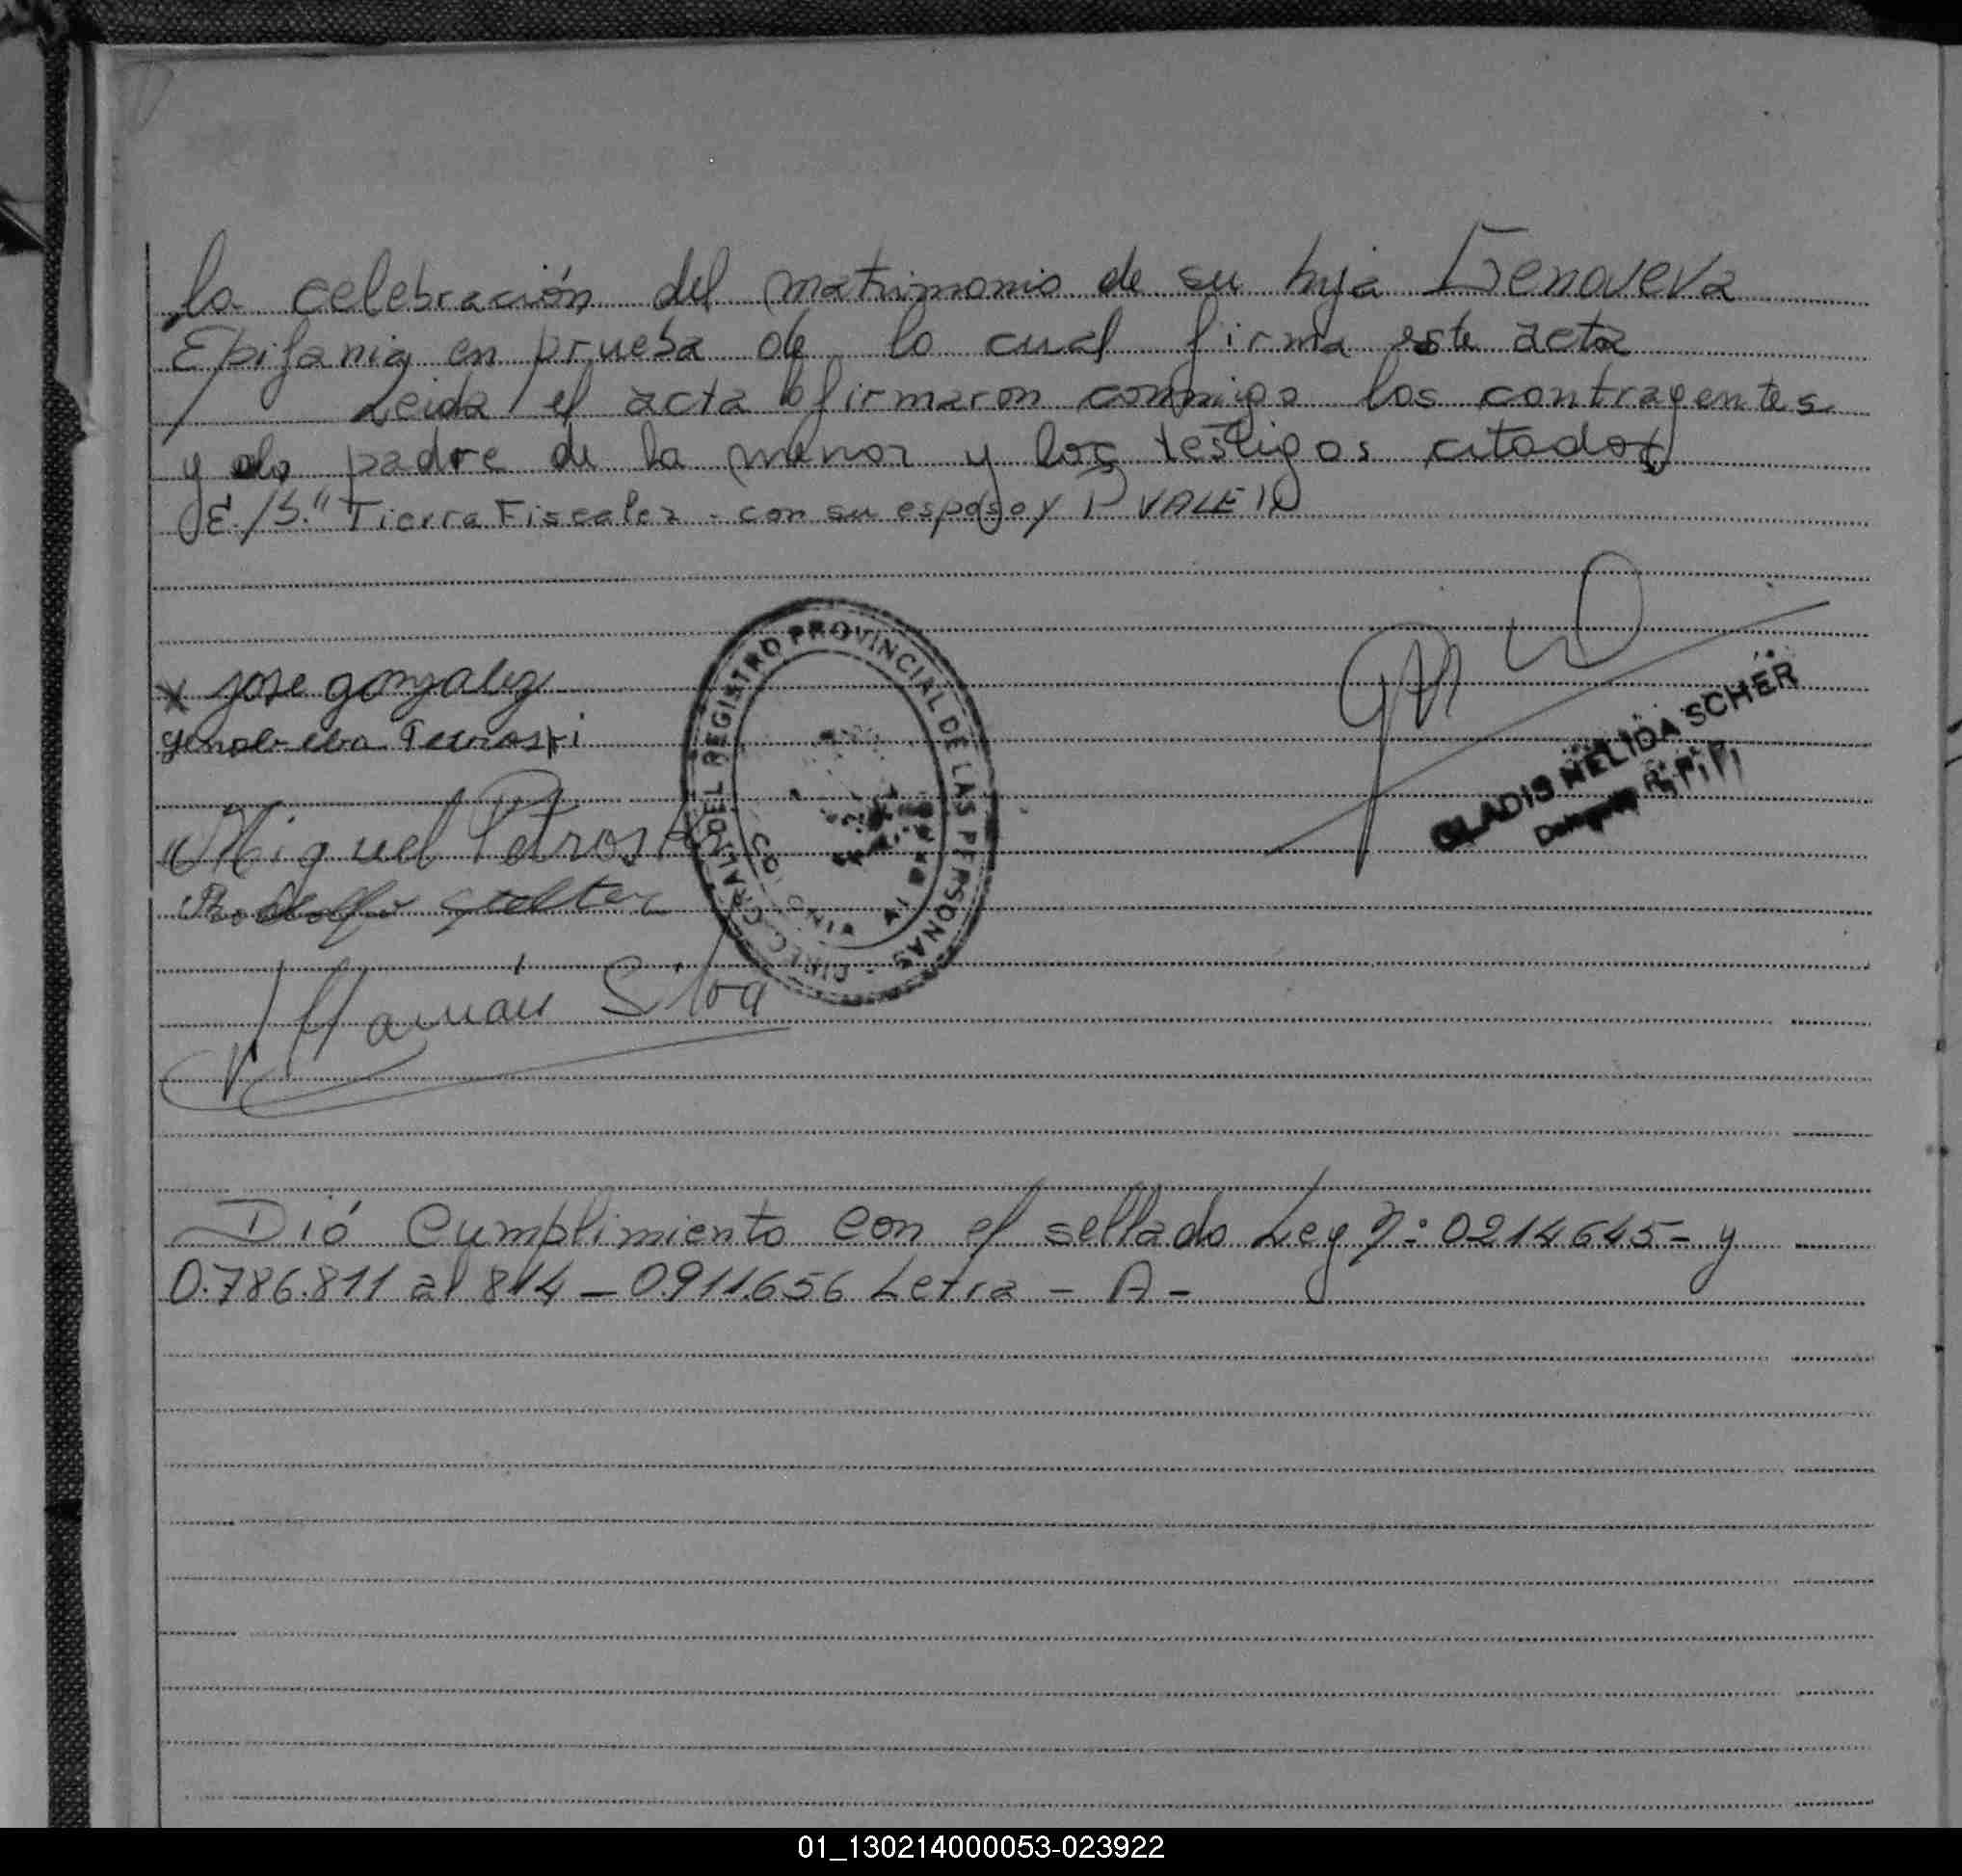 la celebración del matrimonio de su hija Genoveva
Epifania en prueba de lo cual firma este acta
Leida el acta la firmaron conmigo los contrayentes
y el padre de la menor y los testigos citados
E./S." Tierra Fiscales - con su esposo y P VALEN
x jose gonzalez
genobeba Petroski
Miguel Petroski
Rodolfo
Silva
DIREC. GRAL. DEL REGISTRO PROVINCIAL DE LAS PERSONAS
GLADIS NELIDA SCHER
Delegada R.P.P.
Dió Cumplimiento con el sellado Ley N: 0214645- y
0.786.811 al 814 - 0.911.656 Letra - A -
01_130214000053-023922